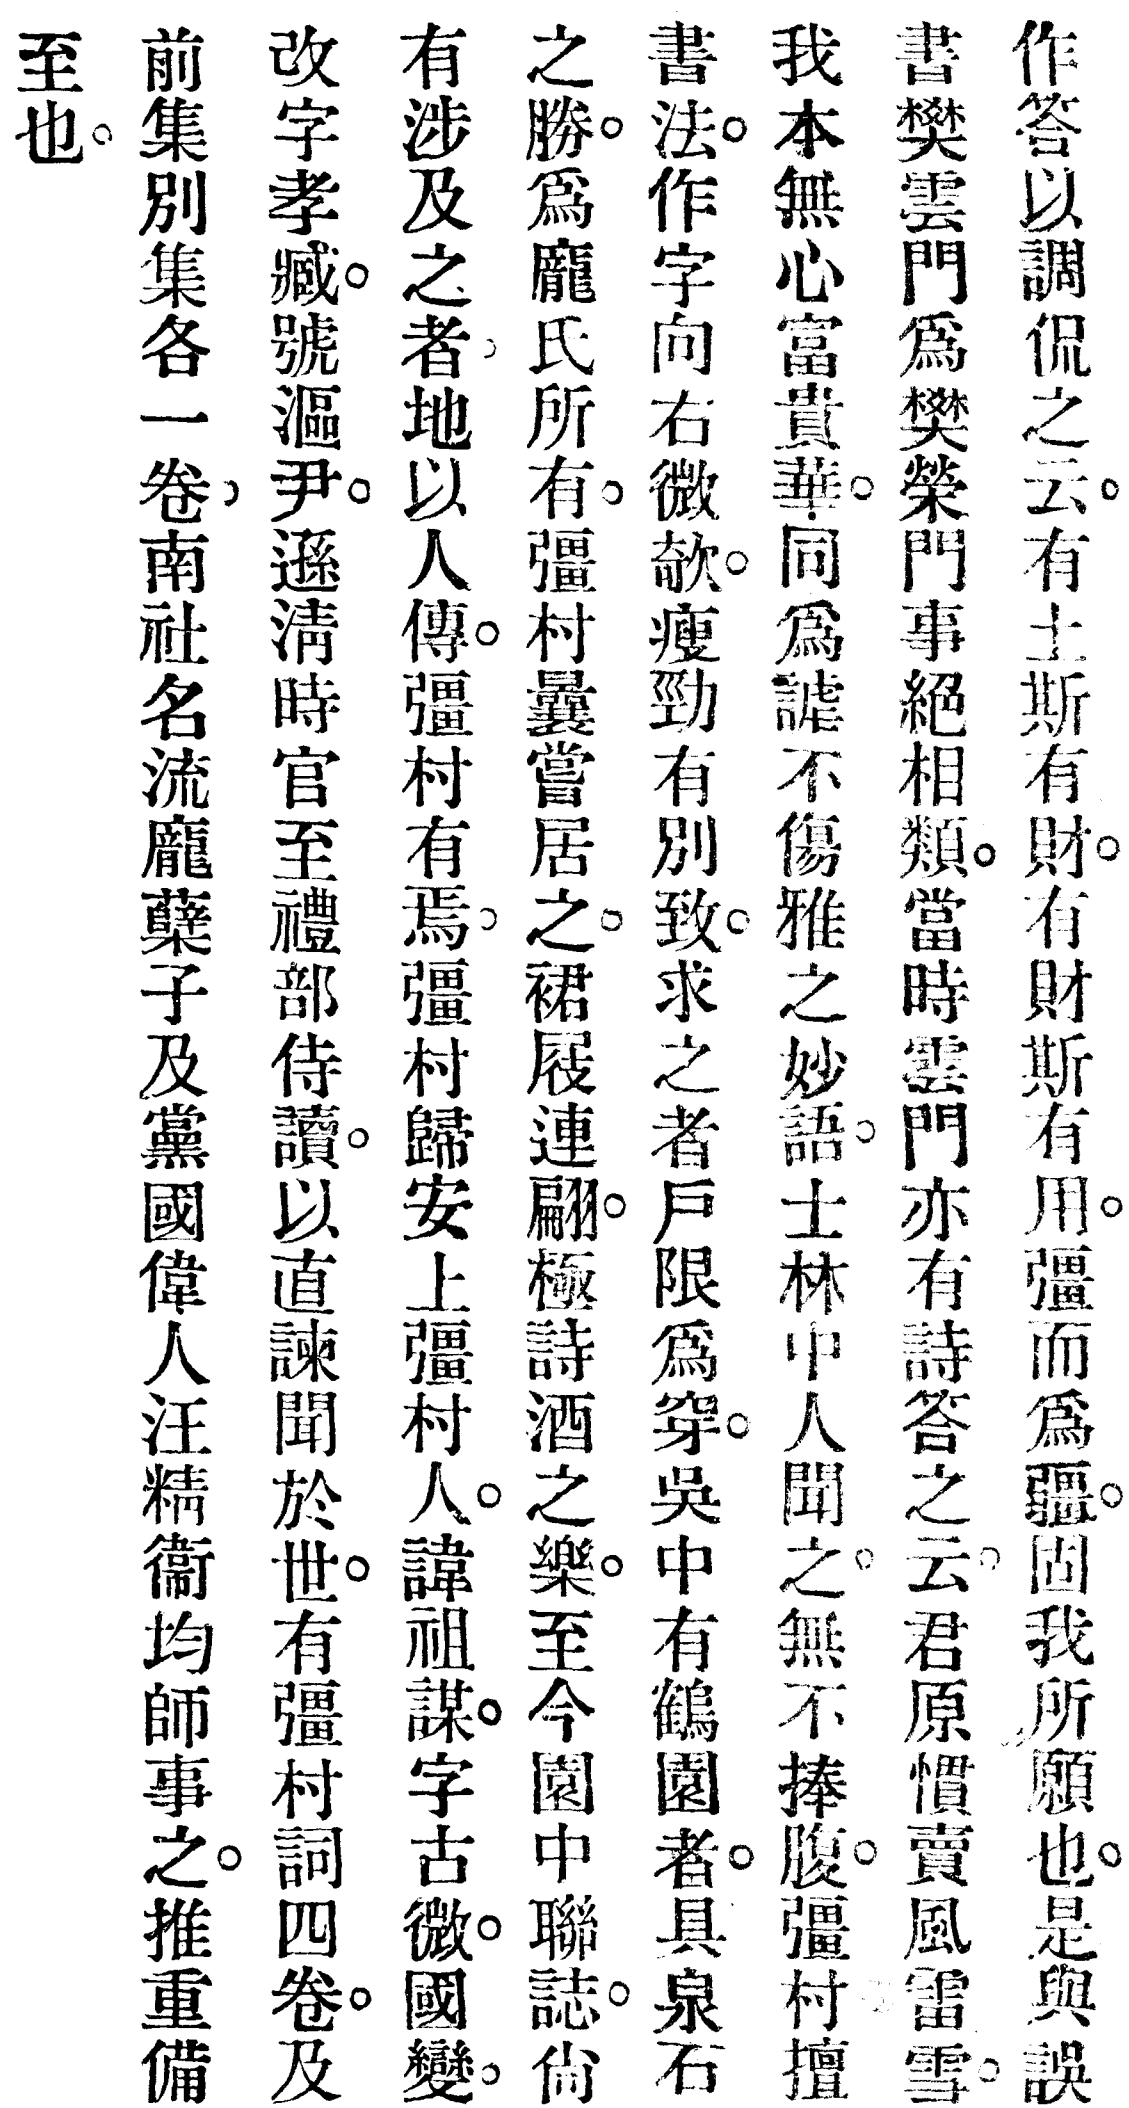 作答以調侃之云。有土斯有財。有財斯有用。彊而爲疆。固我所願也。是與誤
書樊雲門爲樊榮門事絕相類。當時雲門亦有詩答之云。君原慣賣風雷雪。
我本無心富貴華。同爲謔不傷雅之妙語。士林中人聞之。無不捧腹。彊村擅
書法。作字向右微欹。瘦勁有別致。求之者戶限爲穿。吳中有鶴園者。具泉石
之勝。爲龐氏所有。彊村曩嘗居之。裙屐連翩。極詩酒之樂。至今園中聯誌。尙
有涉及之者。地以人傳。彊村有焉。彊村歸安上彊村人。諱祖謀。字古微。國變。
改字孝臧。號漚尹。遜淸時官至禮部侍讀。以直諫聞於世。有彊村詞四卷。及
前集別集各一卷。南社名流龐蘗子及黨國偉人汪精衞均師事之。推重備
至也。